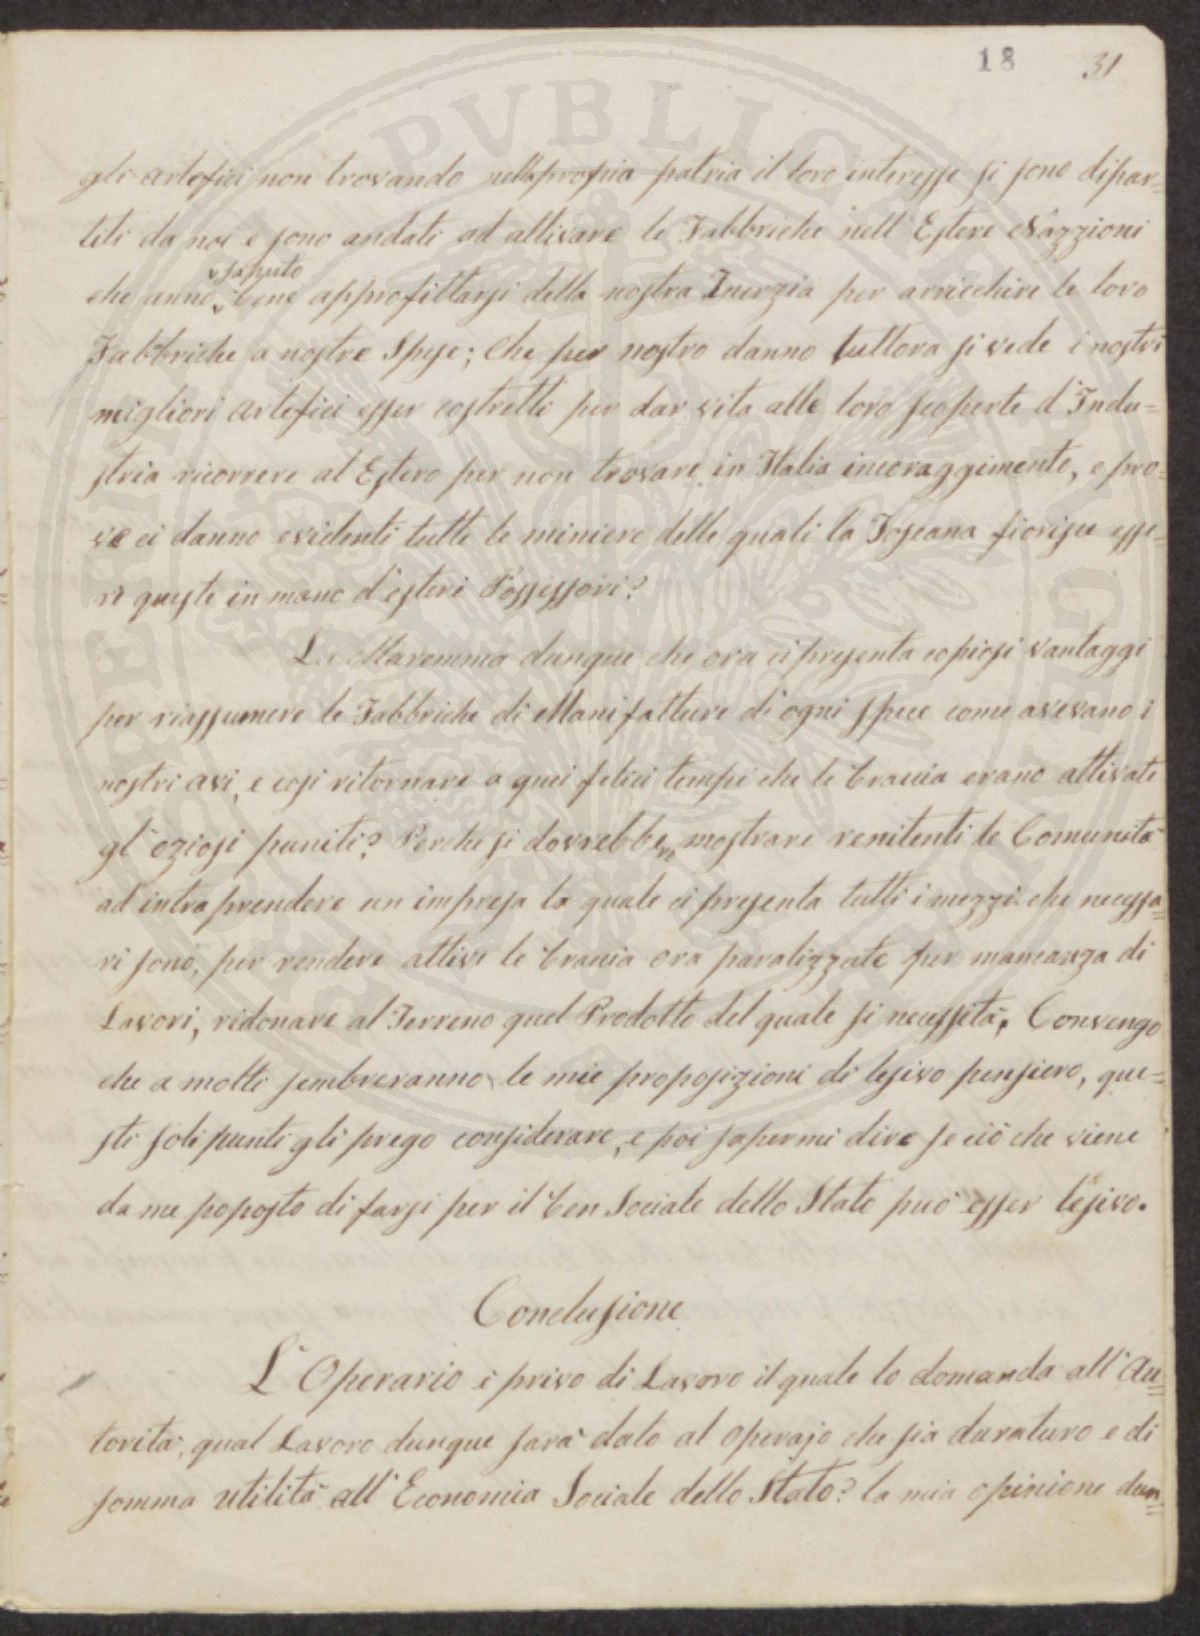 18 31
gli artefici non trovando nella propria patria il loro interesse si sono dipar=
titi da noi e sono andati ad attivare le Fabbriche nell'Estere Nazzioni
saputo
che anno bene approfittarsi della nostra Inerzia per arricchire le loro
Fabbriche a nostre Spese; Che per nostro danno tuttora si vede i nostri
migliori artefici esser costretti per dar vita alle loro scoperte d'Indu=
stria ricorrere al Estero per non trovare in Italia incoraggimento, e pro=
ve ci danno evidenti tutte le miniere delle quali la Toscana fiorisce esse=
re queste in mano d'esteri Possessori?
La Maremma dunque che ora ci presenta copiosi vantaggi
per riassumere le Fabbriche di Manifatture di ogni spece come avevano i
nostri avi, e cosi ritornare a quei felici tempi che le braccia erano attivate
gl'oziosi puniti? Perche si dovrebbero mostrare renitenti le Comunità
ad intraprendere un impresa la quale ci presenta tutti i mezzi che necessa=
ri sono, per rendere attive le braccia ora paralizzate per mancanza di
Lavori, ridonare al Terreno quel Prodotto del quale si necessita, Convengo
che a molti sembreranno le mie proposizioni di lesivo pensiero, que=
sti soli punti gli prego considerare, e poi sapermi dire se ciò che viene
da me poposto di farsi per il ben Sociale dello Stato può esser lesivo.
Conclusione
L'Operario è privo di Lavoro il quale lo domanda all'Au=
torità, qual Lavoro dunque sarà dato al operajo che sia duraturo e di
somma utilità all'Economia Sociale dello Stato? la mia opinione dun=